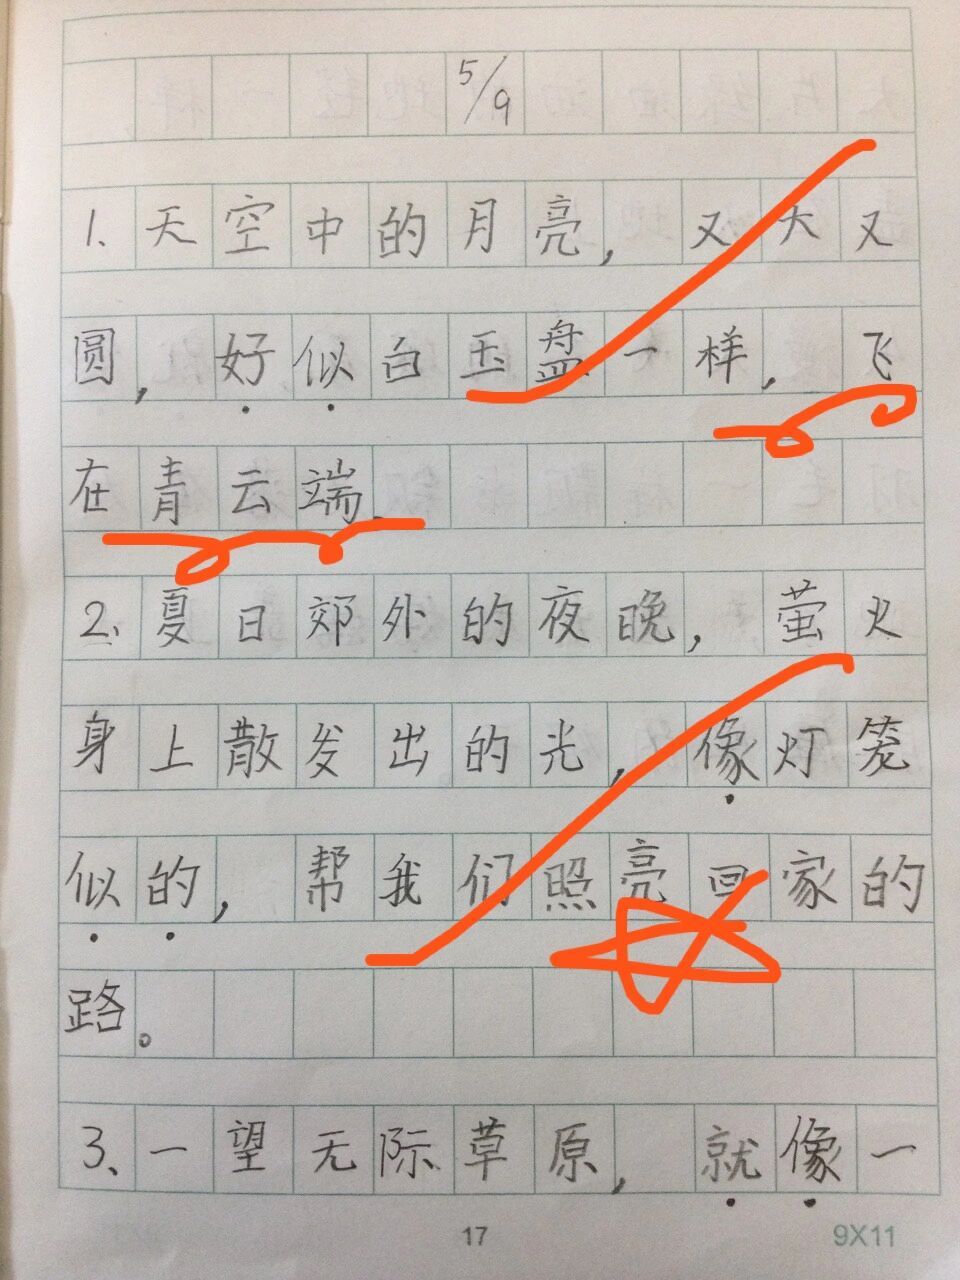 5/9
1、天空中的月亮，又大又
圆，好似白玉盘一样，飞
在青云端.
2、夏日郊外的夜晚，萤火
身上散发出的光，像灯笼
似的，帮我们照亮回家的
路。
3、一望无际草原，就像一
17
9X11